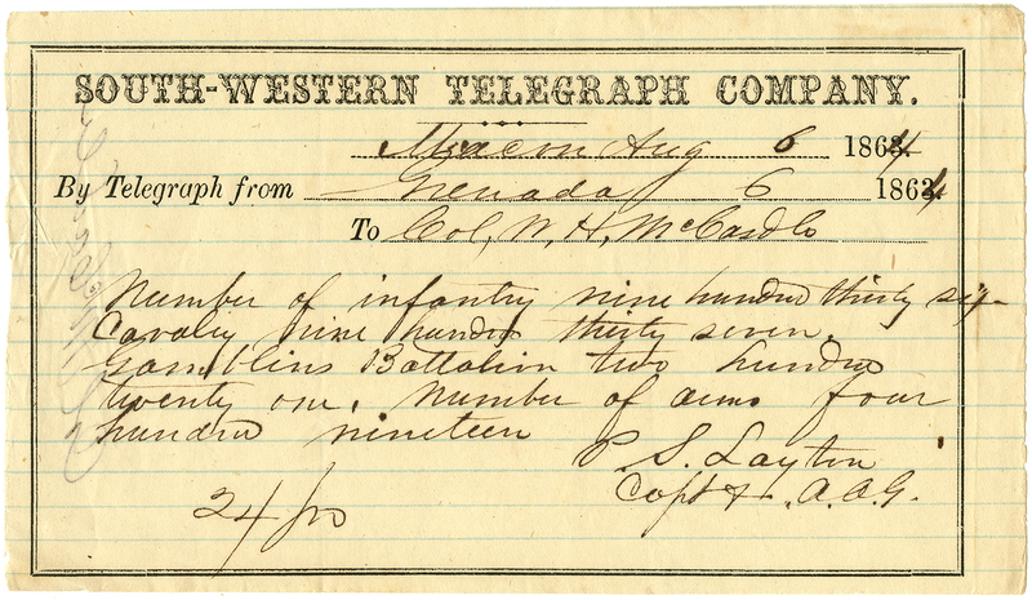 SOUTH-WESTERN TELEGRAPH COMPANY.
Macon Aug 6 1864
By Telegraph from Grenada 6 1864
To Col, W, H, McCardle
Number of infantry nine hundred thirty six
Cavalry nine hundred thirty seven.
Gamblins Battalion two hundred
twenty one. Number of arms four
hundred nineteen
P. S. Layton
Capt & A.A.G.
24